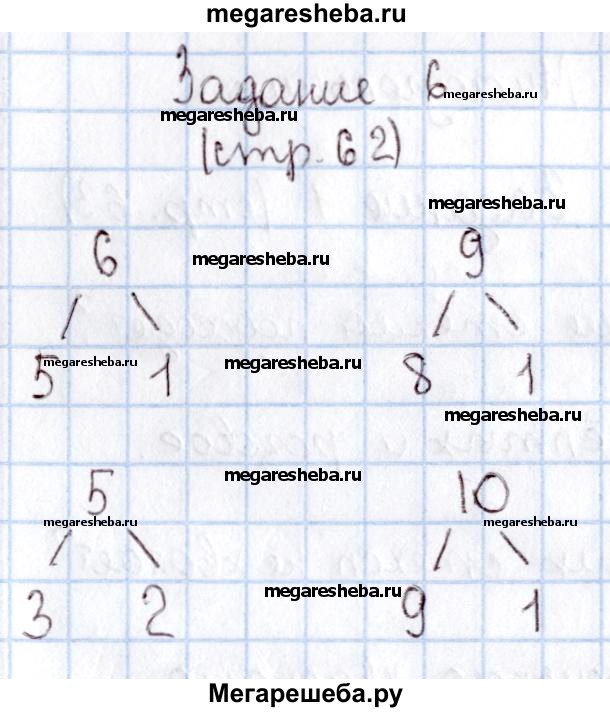 megaresheba.ru
Задание 6
megaresheba.ru
megaresheba.ru
(стр. 62)
megaresheba.ru
6 9
megaresheba.ru
5 1 8 1
megaresheba.ru megaresheba.ru
megaresheba.ru
5 10
megaresheba.ru
megaresheba.ru megaresheba.ru
3 2 9 1
megaresheba.ru
Мегарешеба.ру